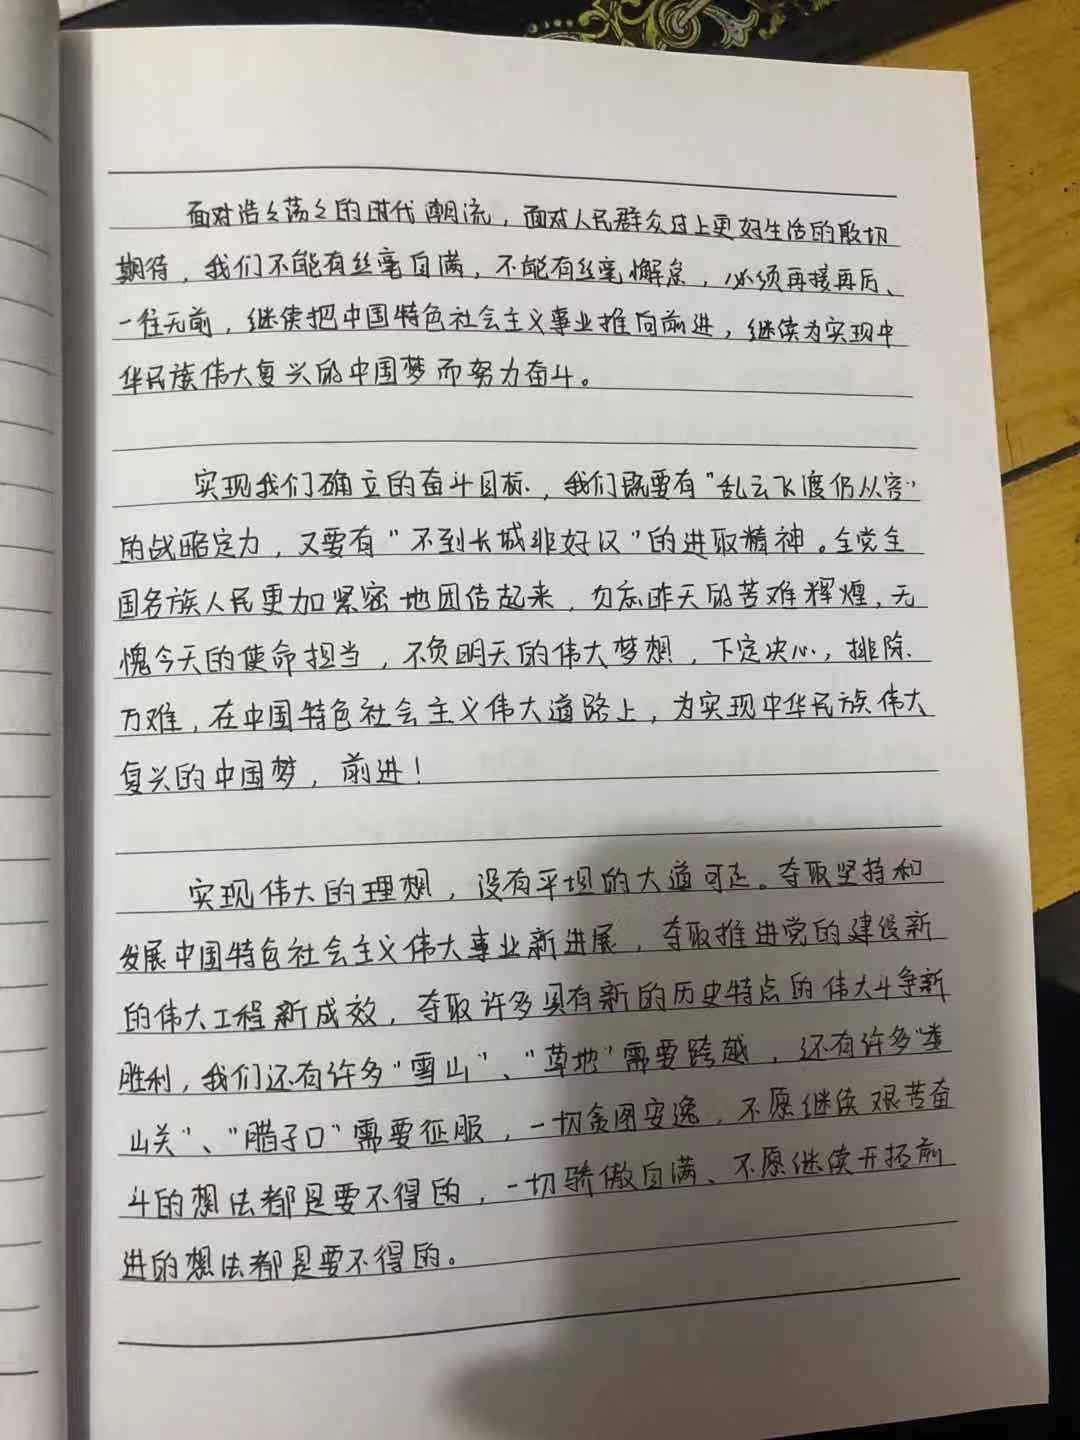 面对浩々荡々的时代潮流，面对人民群众过上更好生活的殷切
期待，我们不能有丝毫自满，不能有丝毫懈怠，必须再接再厉、
一往无前，继续把中国特色社会主义事业推向前进，继续为实现中
华民族伟大复兴的中国梦而努力奋斗。
实现我们确立的奋斗目标，我们既要有“乱云飞渡仍从容”
的战略定力，又要有“不到长城非好汉”的进取精神。全党全
国各族人民更加紧密地团结起来，勿忘昨天的苦难辉煌，无
愧今天的使命担当，不负明天的伟大梦想，下定决心，排除
万难，在中国特色社会主义伟大道路上，为实现中华民族伟大
复兴的中国梦，前进！
实现伟大的理想，没有平坦的大道可走。夺取坚持和
发展中国特色社会主义伟大事业新进展，夺取推进党的建设新
的伟大工程新成效，夺取许多具有新的历史特点的伟大斗争新
胜利，我们还有许多“雪山”、“草地”需要跨越，还有许多“娄
山关”、“腊子口”需要征服，一切贪图安逸，不愿继续艰苦奋
斗的想法都是要不得的，一切骄傲自满、不愿继续开拓前
进的想法都是要不得的。